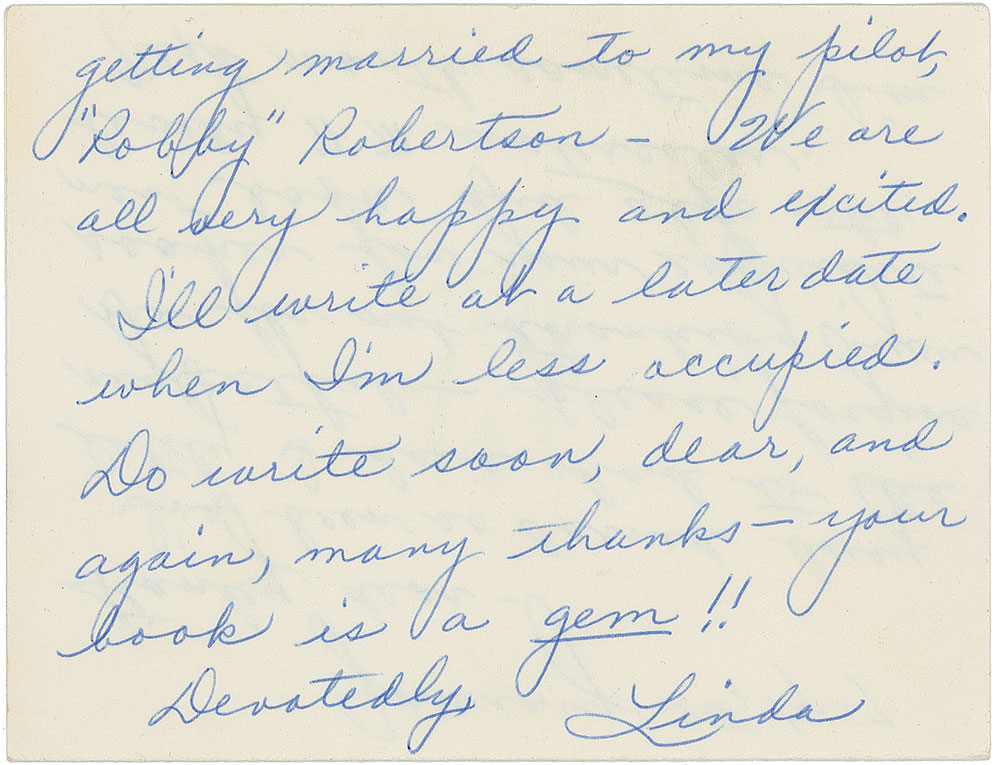 getting married to my pilot,
"Robby" Robertson – We are
all very happy and excited.
I'll write at a later date
when I'm less occupied.
Do write soon, dear, and
again, many thanks – your
book is a gem!!
Devotedly, Linda